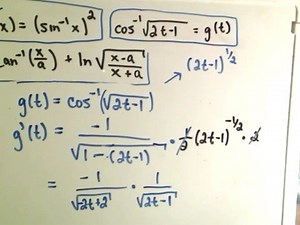 x) = (sin⁻¹x)² cos⁻¹√2t-1 = g(t)
an⁻¹(x/a) + ln√(x-a/x+a) (2t-1)^1/2
g(t) = cos⁻¹(√2t-1)
g'(t) = -1/√1-(2t-1) · 1/2 (2t-1)^-1/2 · 2
= -1/√-2t+2 · 1/√2t-1